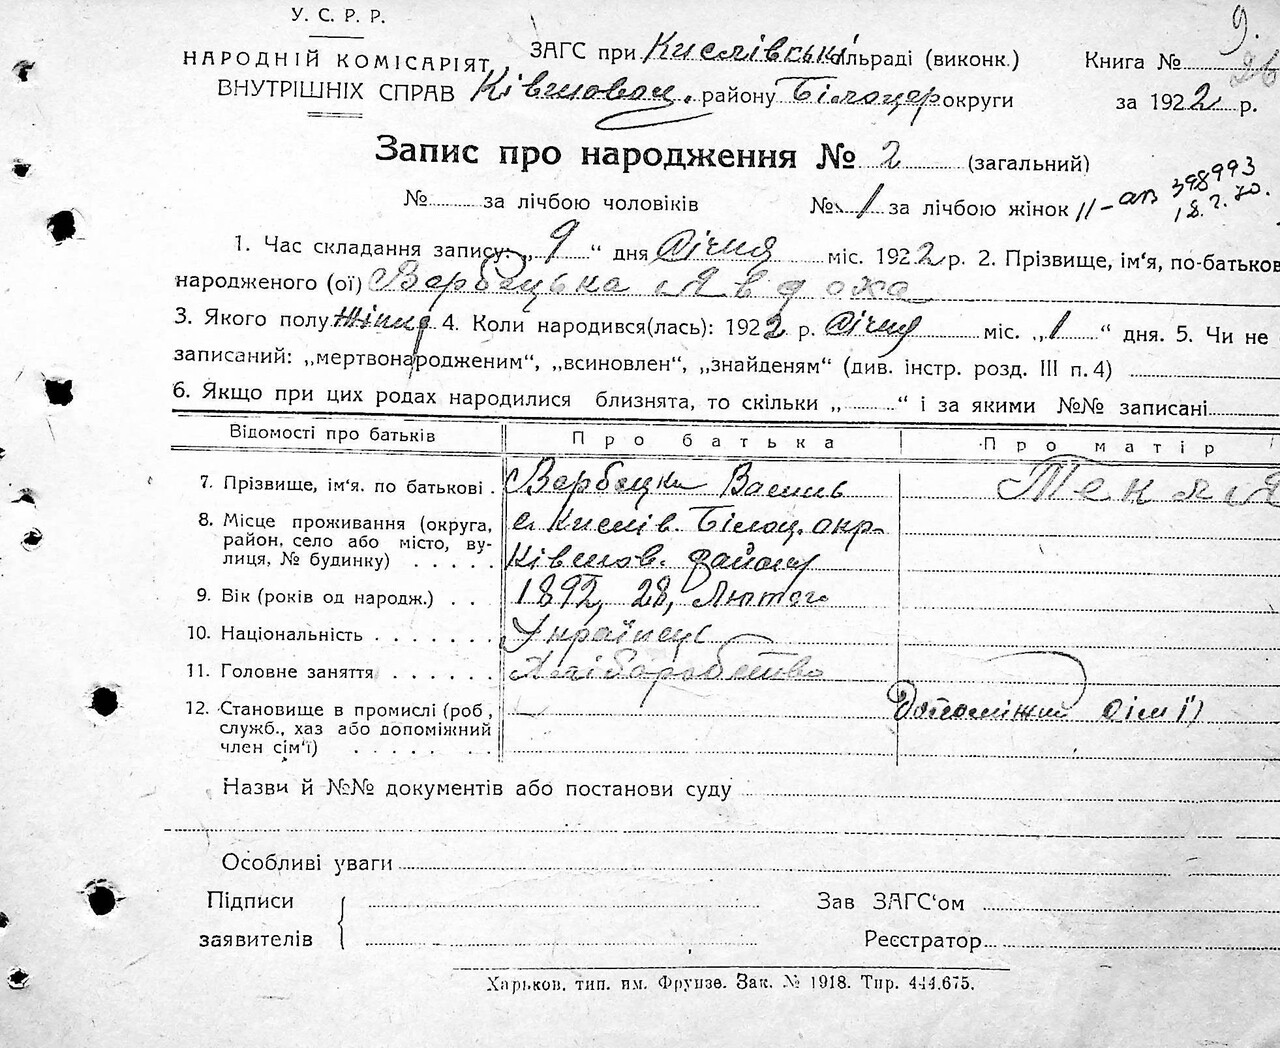 У. С. Р. Р.
НАРОДНІЙ КОМІСАРІЯТ
ВНУТРІШНІХ СПРАВ
ЗАГС при Кислівські сільраді (виконк.)
Ківшоваț. району Білоцер округи
Книга №
9.
26
за 1922 р.
Запис про народження № 2 (загальний)
№ за лічбою чоловіків № 1 за лічбою жінок II-АП 398993
18.2.70.
1. Час складання запису: „9“ дня Січня міс. 1922 р. 2. Прізвище, ім‘я, по-батьков
народженого (ої) Вербецька Явдоха
3. Якого полу Жіноч 4. Коли народився(лась): 1922 р. Січня міс. „1“ дня. 5. Чи не
записаний: „мертвонародженим“, „всиновлен“, „знайденям“ (див. інстр. розд. III п. 4)
6. Якщо при цих родах народилися близнята, то скільки „ “ і за якими №№ записані
Відомості про батьків Про батька Про матір
7. Прізвище, ім‘я. по батькові Вербецки Василь Текля
8. Місце проживання (округа, район, село або місто, вулиця, № будинку) с. Кислів. Білоц. окр.
Ківшов. району
9. Вік (років од народж.) 1892, 28, Лютого
10. Національність Українец
11. Головне заняття Хліборобство
12. Становище в промислі (роб, служб., хаз або допоміжний член сім‘ї) Допоміжний сімї
Назви й №№ документів або постанови суду
Особливі уваги
Підписи
заявителів
Зав ЗАГС‘ом
Реєстратор
Харьков. тип. им. Фрунзе. Зак. № 1918. Тир. 444.675.